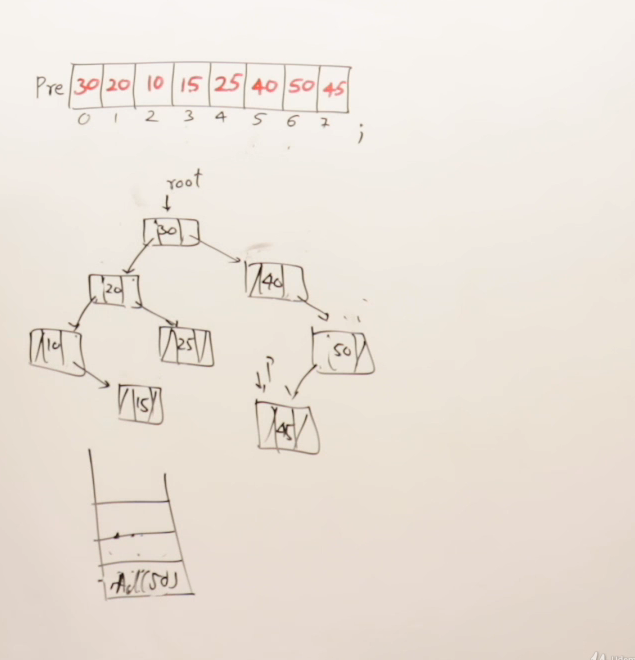 Pre 30 20 10 15 25 40 50 45
0 1 2 3 4 5 6 7 ;
root
30
20 40
10 25 50
P
15 45
Ad(50)